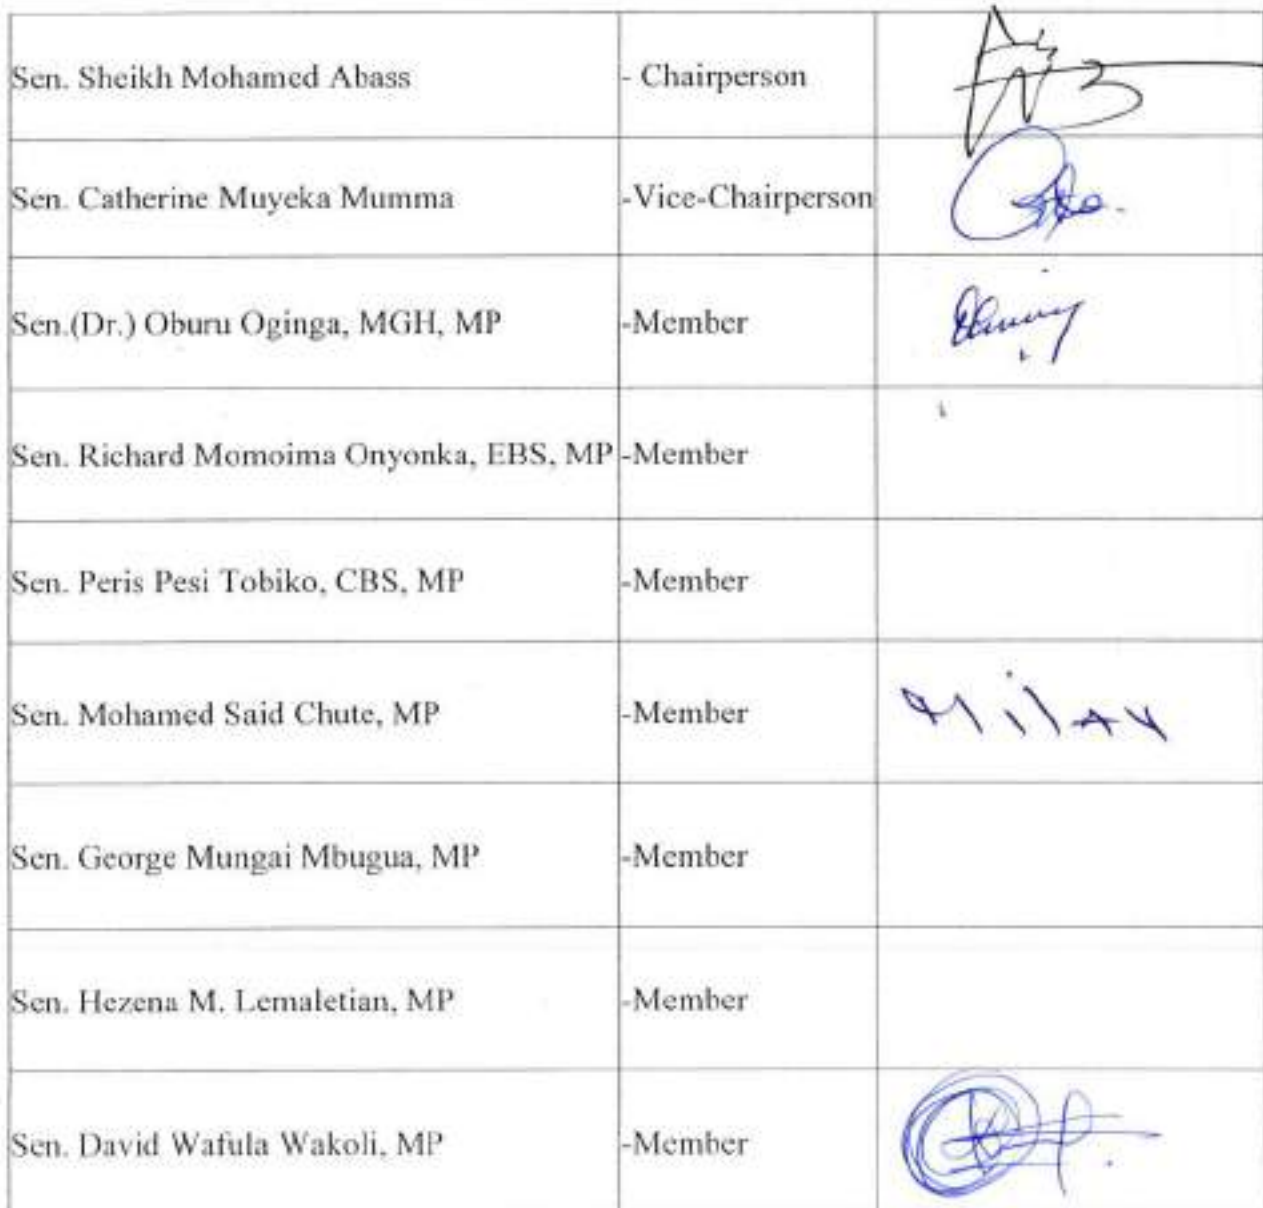 Sen. Sheikh Mohamed Abass - Chairperson
Sen. Catherine Muyeka Mumma -Vice-Chairperson
Sen.(Dr.) Oburu Oginga, MGH, MP -Member
Sen. Richard Momoima Onyonka, EBS, MP -Member
Sen. Peris Pesi Tobiko, CBS, MP -Member
Sen. Mohamed Said Chute, MP -Member
Sen. George Mungai Mbugua, MP -Member
Sen. Hezena M. Lemaletian, MP -Member
Sen. David Wafula Wakoli, MP -Member